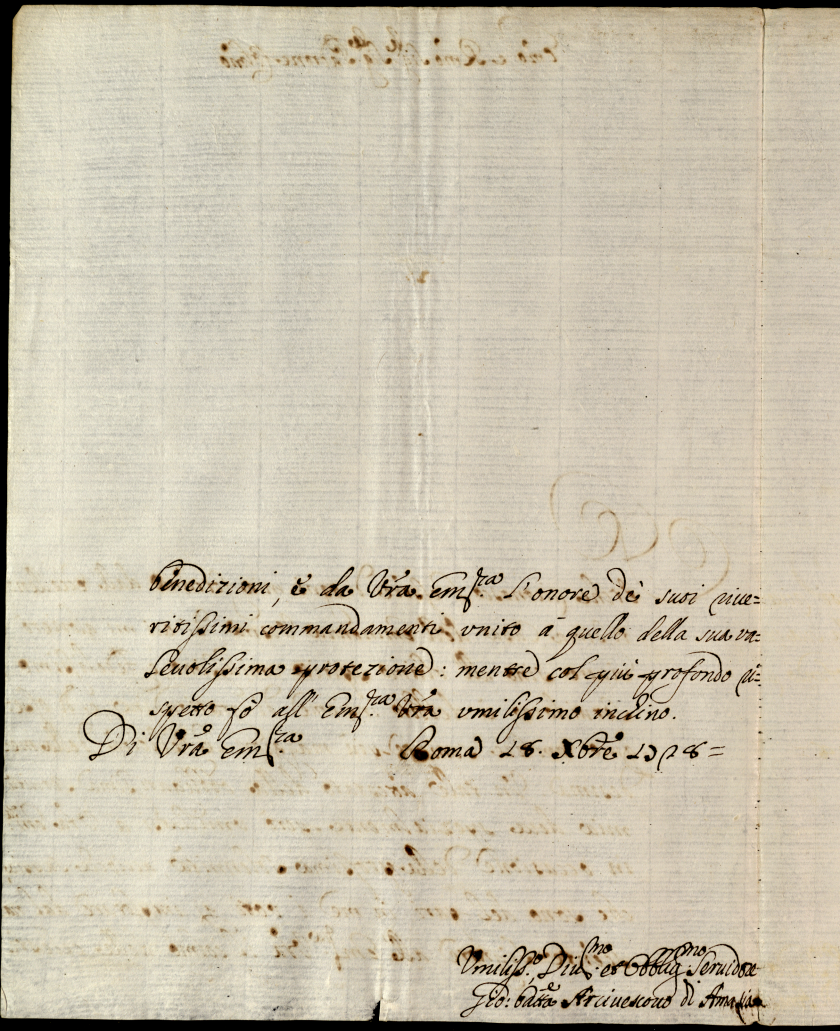 benedizioni, è da Vrã Em.ʳᵃ l'onore de' suoi rive=
ritissimi commandamenti vnito à quello della sua va-
levolissima protezione: mentre col più profondo ri-
spetto fò all' Em.ʳᵃ Vrã vmilissimo inchino.
Di Vrã Em.ʳᵃ Roma 18. Xbrẽ =
Vmiliss.º Div.ᵐᵒ et Obblig.ᵐᵒ Servidore
Gio: Batta Arcivescovo di